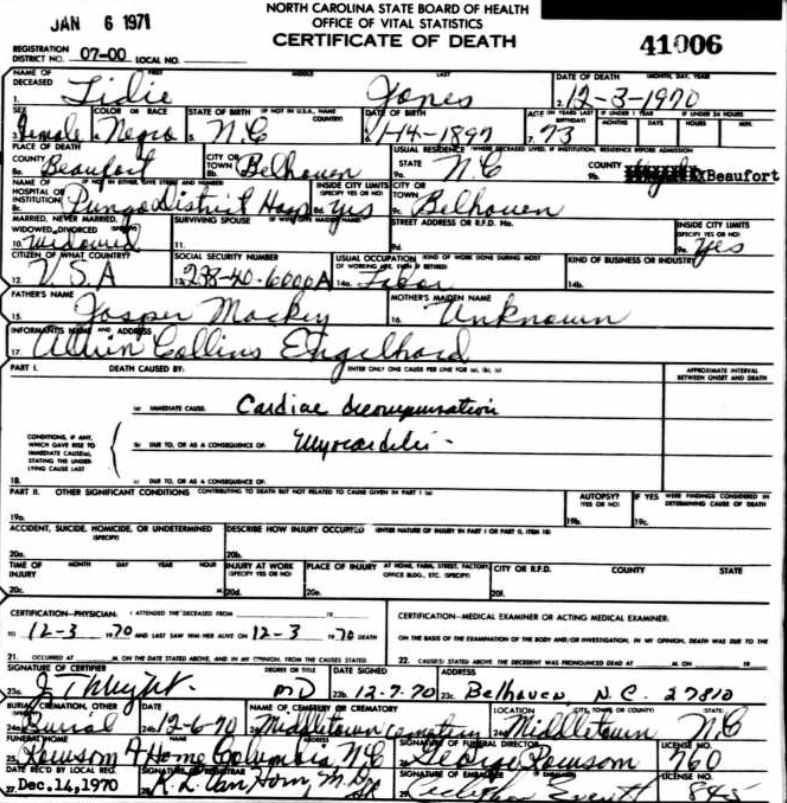 JAN 6 1971
NORTH CAROLINA STATE BOARD OF HEALTH
OFFICE OF VITAL STATISTICS
CERTIFICATE OF DEATH
41006
REGISTRATION DISTRICT NO. 07-00 LOCAL NO.
NAME OF DECEASED FIRST MIDDLE LAST DATE OF DEATH (MONTH, DAY, YEAR)
1. Lidie Jones 2. 12-3-1970
SEX COLOR OR RACE STATE OF BIRTH (IF NOT IN U.S.A., NAME COUNTRY) DATE OF BIRTH AGE (IN YEARS LAST BIRTHDAY) IF UNDER 1 YEAR MONTHS DAYS IF UNDER 24 HOURS HOURS MIN.
3. Female 4. Negro 5. N.C 1-14-1897 7. 73
PLACE OF DEATH USUAL RESIDENCE (WHERE DECEASED LIVED. IF INSTITUTION, RESIDENCE BEFORE ADMISSION)
COUNTY CITY OR TOWN STATE COUNTY
8a. Beaufort 8b. Belhaven 9a. N.C 9b. Beaufort
NAME OF HOSPITAL OR INSTITUTION (IF NOT IN EITHER, GIVE STREET AND NUMBER) INSIDE CITY LIMITS (SPECIFY YES OR NO) CITY OR TOWN
8c. Pungo District Hosp 8d. yes 9c. Belhaven
MARRIED, NEVER MARRIED, WIDOWED, DIVORCED (SPECIFY) SURVIVING SPOUSE (IF WIFE, GIVE MAIDEN NAME) STREET ADDRESS OR R.F.D. No. INSIDE CITY LIMITS (SPECIFY YES OR NO)
10. Widowed 11. 9d. 9e. yes
CITIZEN OF WHAT COUNTRY? SOCIAL SECURITY NUMBER USUAL OCCUPATION (KIND OF WORK DONE DURING MOST OF WORKING LIFE, EVEN IF RETIRED) KIND OF BUSINESS OR INDUSTRY
12. U.S.A 13. 238-40-6000A 14a. Labor 14b.
FATHER'S NAME MOTHER'S MAIDEN NAME
15. Jasper Mackey 16. Unknown
INFORMANT'S NAME AND ADDRESS
17. Alvin Collins Engelhard
PART I. DEATH CAUSED BY: (ENTER ONLY ONE CAUSE PER LINE FOR (a), (b), (c)) APPROXIMATE INTERVAL BETWEEN ONSET AND DEATH
(a) IMMEDIATE CAUSE: Cardiac decompensation
CONDITIONS, IF ANY, WHICH GAVE RISE TO IMMEDIATE CAUSE(S), STATING THE UNDERLYING CAUSE LAST
(b) DUE TO, OR AS A CONSEQUENCE OF: Myocarditis -
18. (c) DUE TO, OR AS A CONSEQUENCE OF:
PART II. OTHER SIGNIFICANT CONDITIONS CONTRIBUTING TO DEATH BUT NOT RELATED TO CAUSE GIVEN IN PART I (a) AUTOPSY? (YES OR NO) IF YES WERE FINDINGS CONSIDERED IN DETERMINING CAUSE OF DEATH
19a. 19b. 19c.
ACCIDENT, SUICIDE, HOMICIDE, OR UNDETERMINED (SPECIFY) DESCRIBE HOW INJURY OCCURRED (ENTER NATURE OF INJURY IN PART I OR PART II, ITEM 18)
20a. 20b.
TIME OF INJURY MONTH DAY YEAR HOUR INJURY AT WORK (SPECIFY YES OR NO) PLACE OF INJURY AT HOME, FARM, STREET, FACTORY, OFFICE BLDG., ETC. (SPECIFY) CITY OR R.F.D. COUNTY STATE
20c. M. 20d. 20e. 20f.
CERTIFICATION-PHYSICIAN: I ATTENDED THE DECEASED FROM 19 CERTIFICATION-MEDICAL EXAMINER OR ACTING MEDICAL EXAMINER:
TO 12-3 1970 AND LAST SAW HIM HER ALIVE ON 12-3 1970 DEATH ON THE BASIS OF THE EXAMINATION OF THE BODY AND/OR INVESTIGATION, IN MY OPINION, DEATH WAS DUE TO THE
21. OCCURRED AT M. ON THE DATE STATED ABOVE, AND IN MY OPINION, FROM THE CAUSES STATED. 22. CAUSE(S) STATED ABOVE THE DECEDENT WAS PRONOUNCED DEAD AT M. ON 19
SIGNATURE OF CERTIFIER DEGREE OR TITLE DATE SIGNED ADDRESS
23a. MD 23b. 12-7-70 23c. Belhaven, N.C. 27810
BURIAL, CREMATION, OTHER (SPECIFY) DATE NAME OF CEMETERY OR CREMATORY LOCATION (CITY, TOWN, OR COUNTY) (STATE)
24a. Burial 24b. 12-6-70 24c. Middletown cemetery 24d. Middletown N.C
FUNERAL HOME NAME ADDRESS SIGNATURE OF FUNERAL DIRECTOR LICENSE NO.
25. Rowsom F Home Columbia, N.C 26. George Rowsom 760
DATE REC'D BY LOCAL REG. SIGNATURE OF REGISTRAR SIGNATURE OF EMBALMER LICENSE NO.
27. Dec.14,1970 28. K. L. Van Horn, M.D. 29. Everett 845